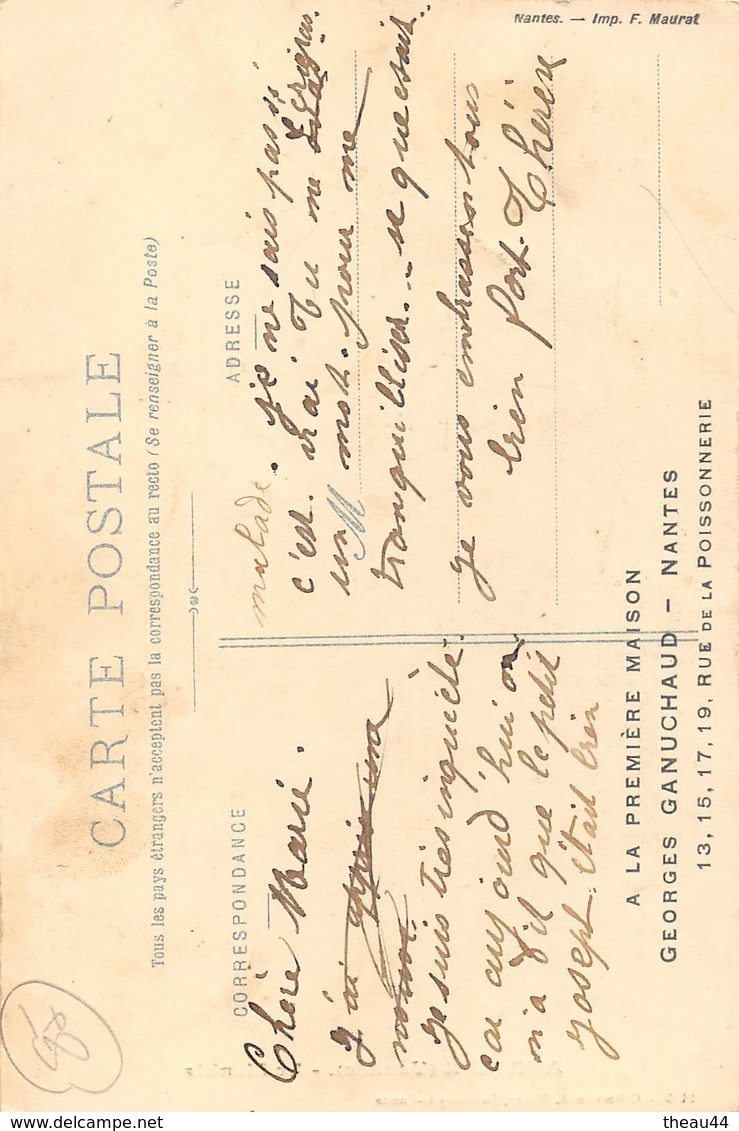 Nantes. — Imp. F. Maurat
CARTE POSTALE
Tous les pays étrangers n'acceptent pas la correspondance au recto (Se renseigner à la Poste)
CORRESPONDANCE
Chère Marie.
J'ai
Je suis très inquiète
car aujourd'hui on
m'a dit que le petit
Joseph était bien
ADRESSE
malade. je ne sais pas si
c'est vrai. Tu me
un mot. pour me
tranquilliser.. ce que c'est..
Je vous embrassons tous
bien fort. Thérèse
A LA PREMIÈRE MAISON
GEORGES GANUCHAUD — NANTES
13, 15, 17, 19, RUE DE LA POISSONNERIE
theau44